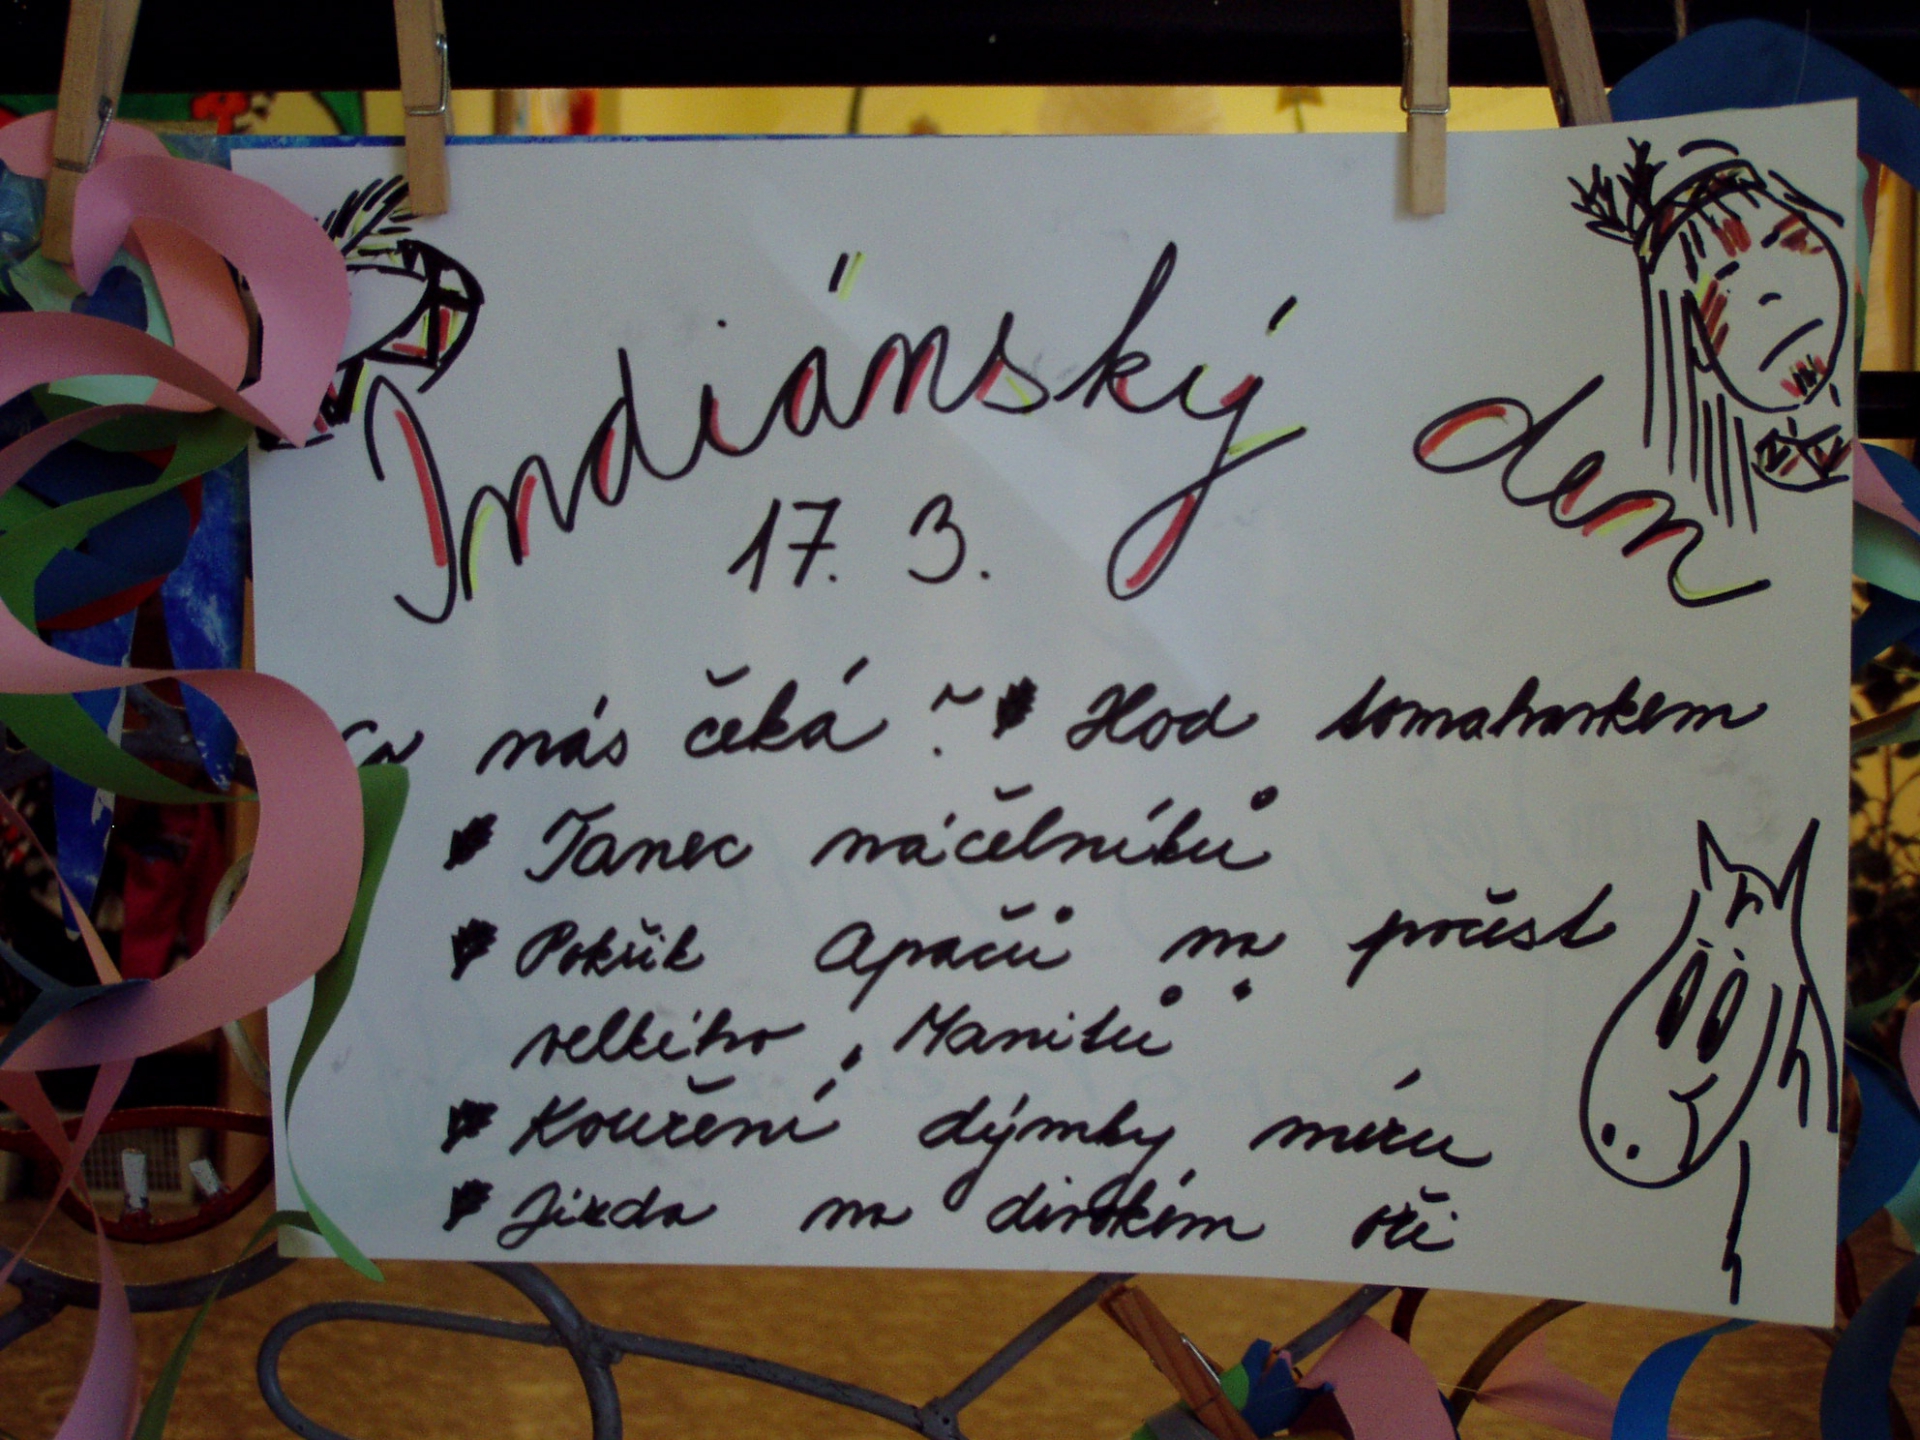 Indiánský den
17. 3.
Co nás čeká? Hod tomahavkem
Tanec náčelníků
Pokřik Apačů na počest
velkého „Manitů"
Kouření dýmky míru
Jízda na divokém oři